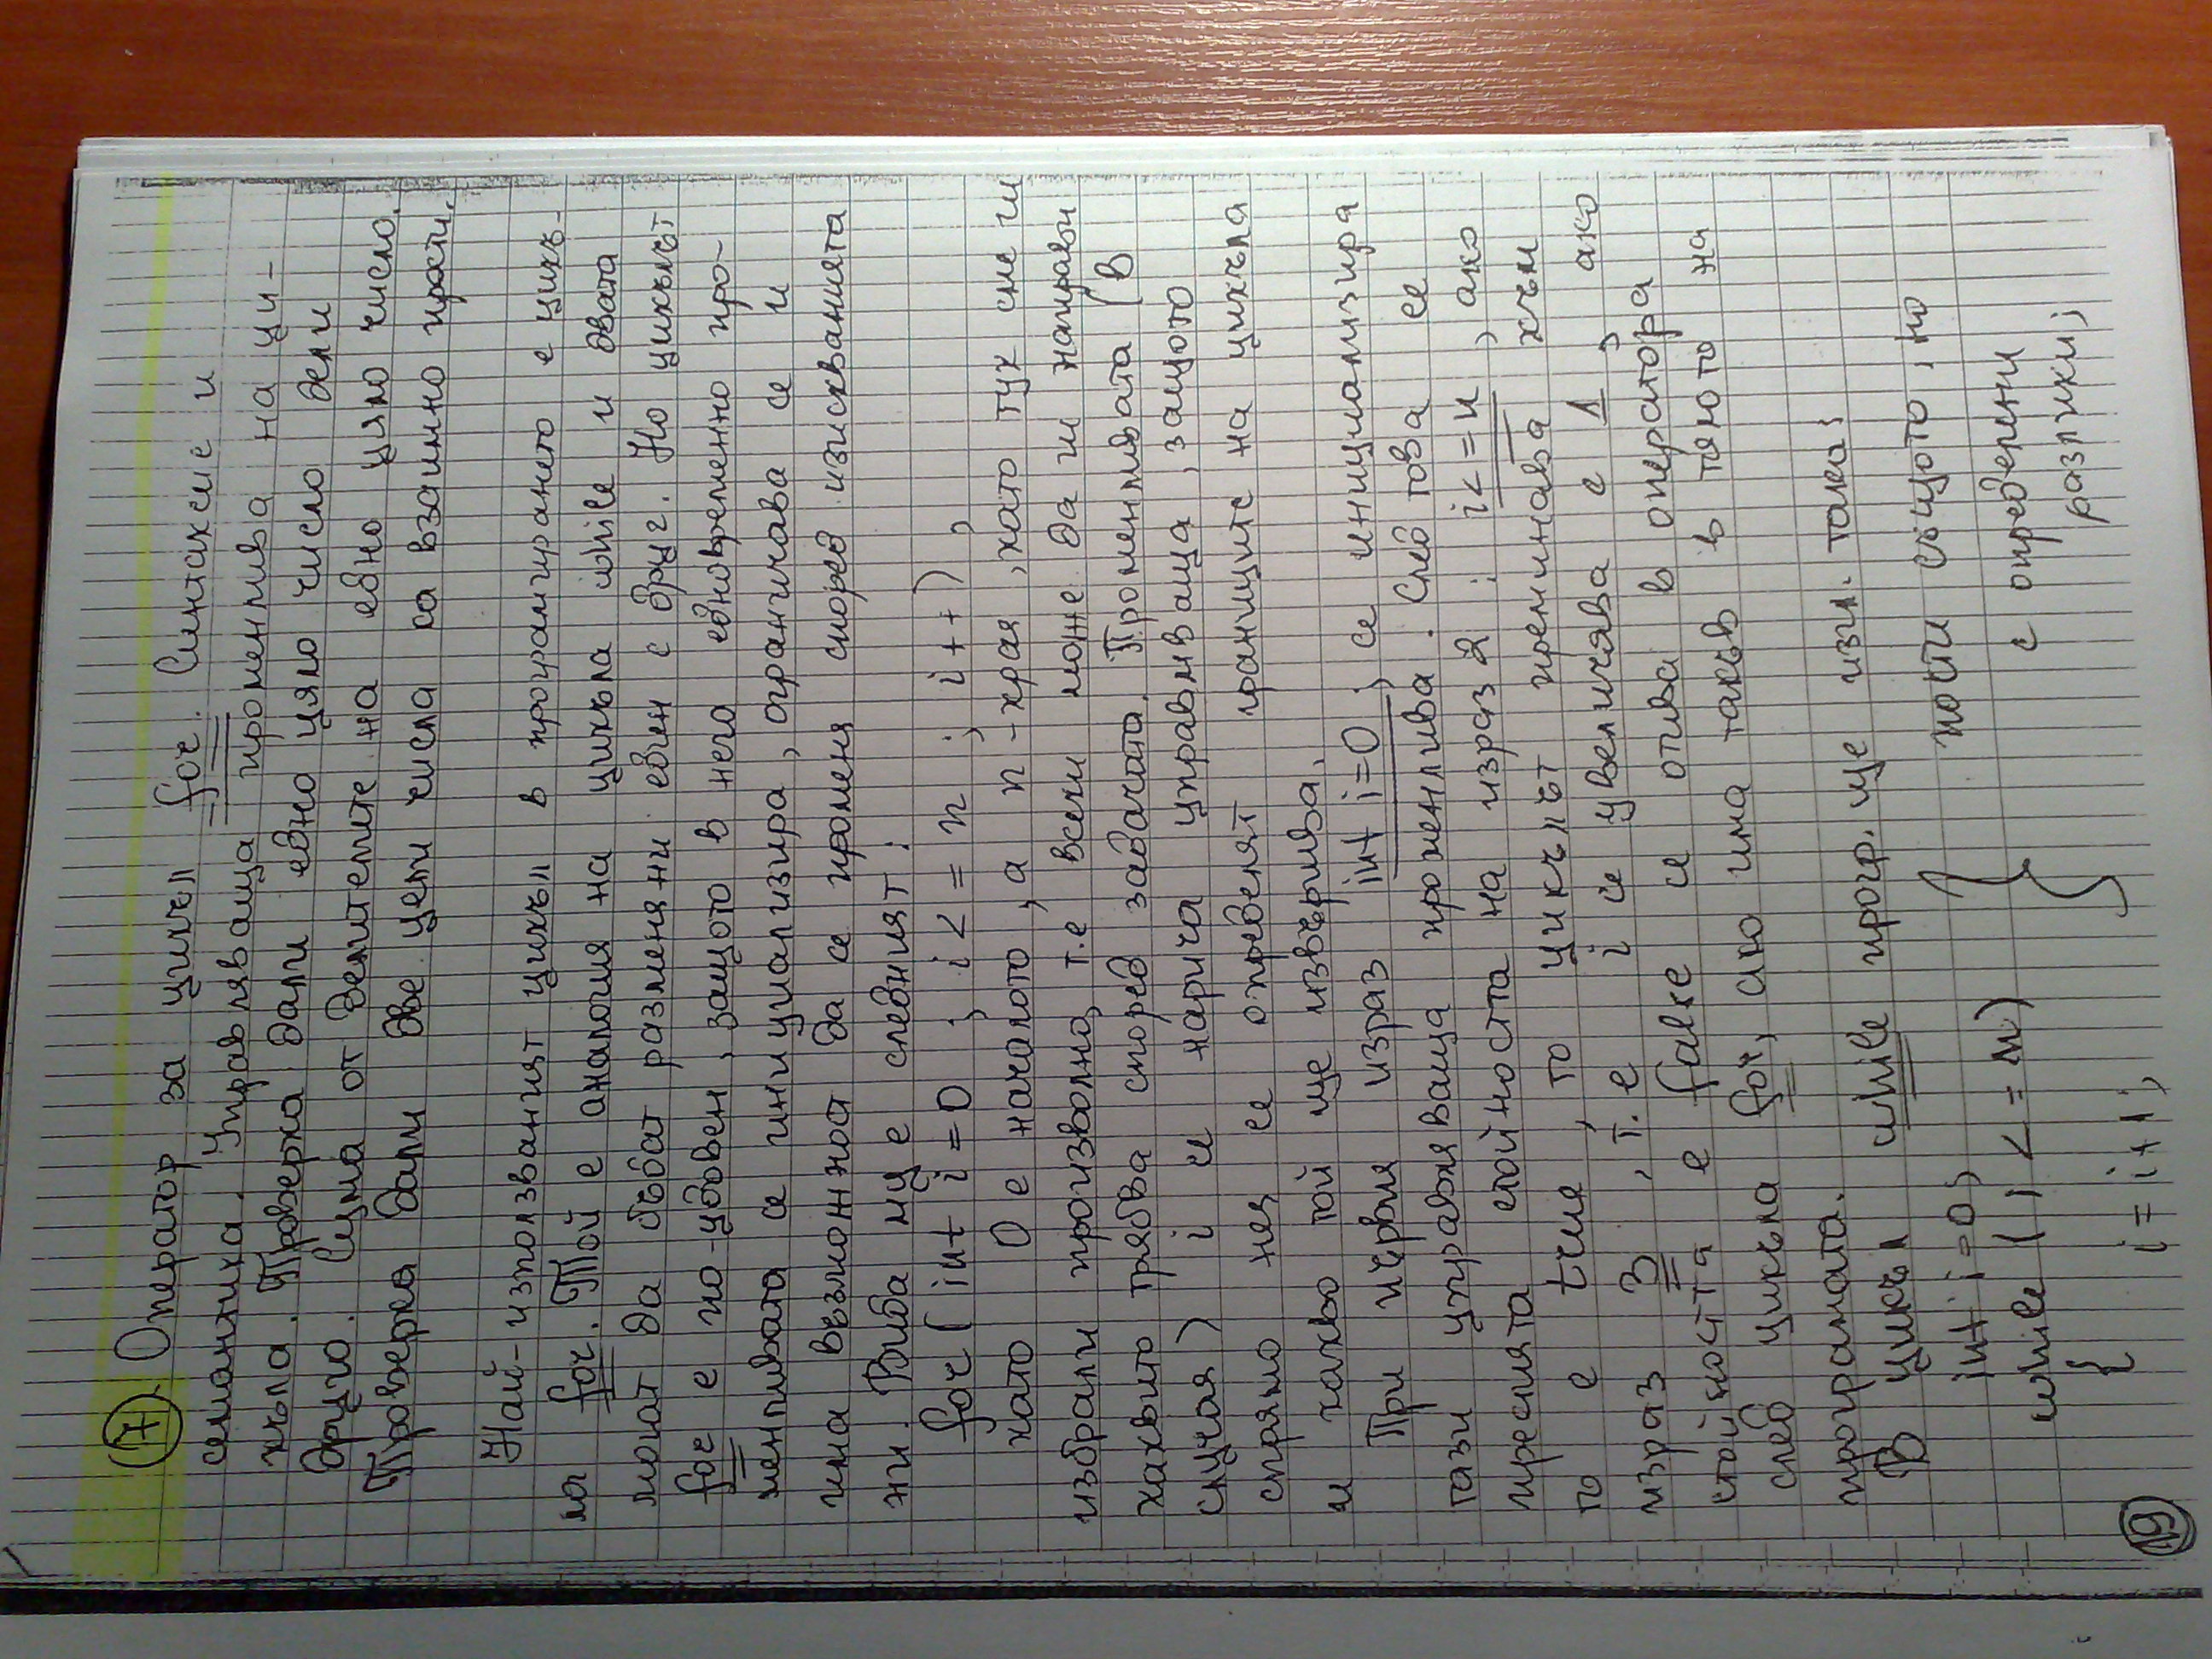 7. Оператор за цикъл for. Синтаксис и
семантика. Управляваща променлива на ци-
къла. Проверка дали едно цяло число дели
друго. Сума от делителите на едно цяло число.
Проверка дали две цели числа са взаимно прости.
Най-използваният цикъл в програмирането е цикъ-
ла for. Той е аналогия на цикъла while и двата
могат да бъдат разменяни един с друг. Но цикълът
for е по-удобен, защото в него едновременно про-
менливата се инициализира, ограничава се и
има възможност да се променя според изискванията
ни. Вида му е следният:
for (int i=0 ; i<=n ; i++) ;
като 0 е началото, а n-края, като тук сме ги
избрали произволно, т.е всеки може да ги направи
каквито трябва според задачата. Променливата (в
случая) i се нарича управляваща, защото
спрямо нея се определят границите на цикъла
и какво той ще извършва.
При първия израз int i=0; се инициализира
тази управляваща променлива. След това се
пресмята стойността на израз 2: i<=n, ако
то е true, то цикълът преминава към
израз 3, т.е i се увеличава с 1; ако
стойността е false се отива в оператора
след цикъла for, ако има такъв в тялото на
програмата.
В цикъл while прогр. ще изгл. така:
int i=0;
while (i<=n)
{
i=i+1;
}
почти същото, но
с определени
разлики;
19